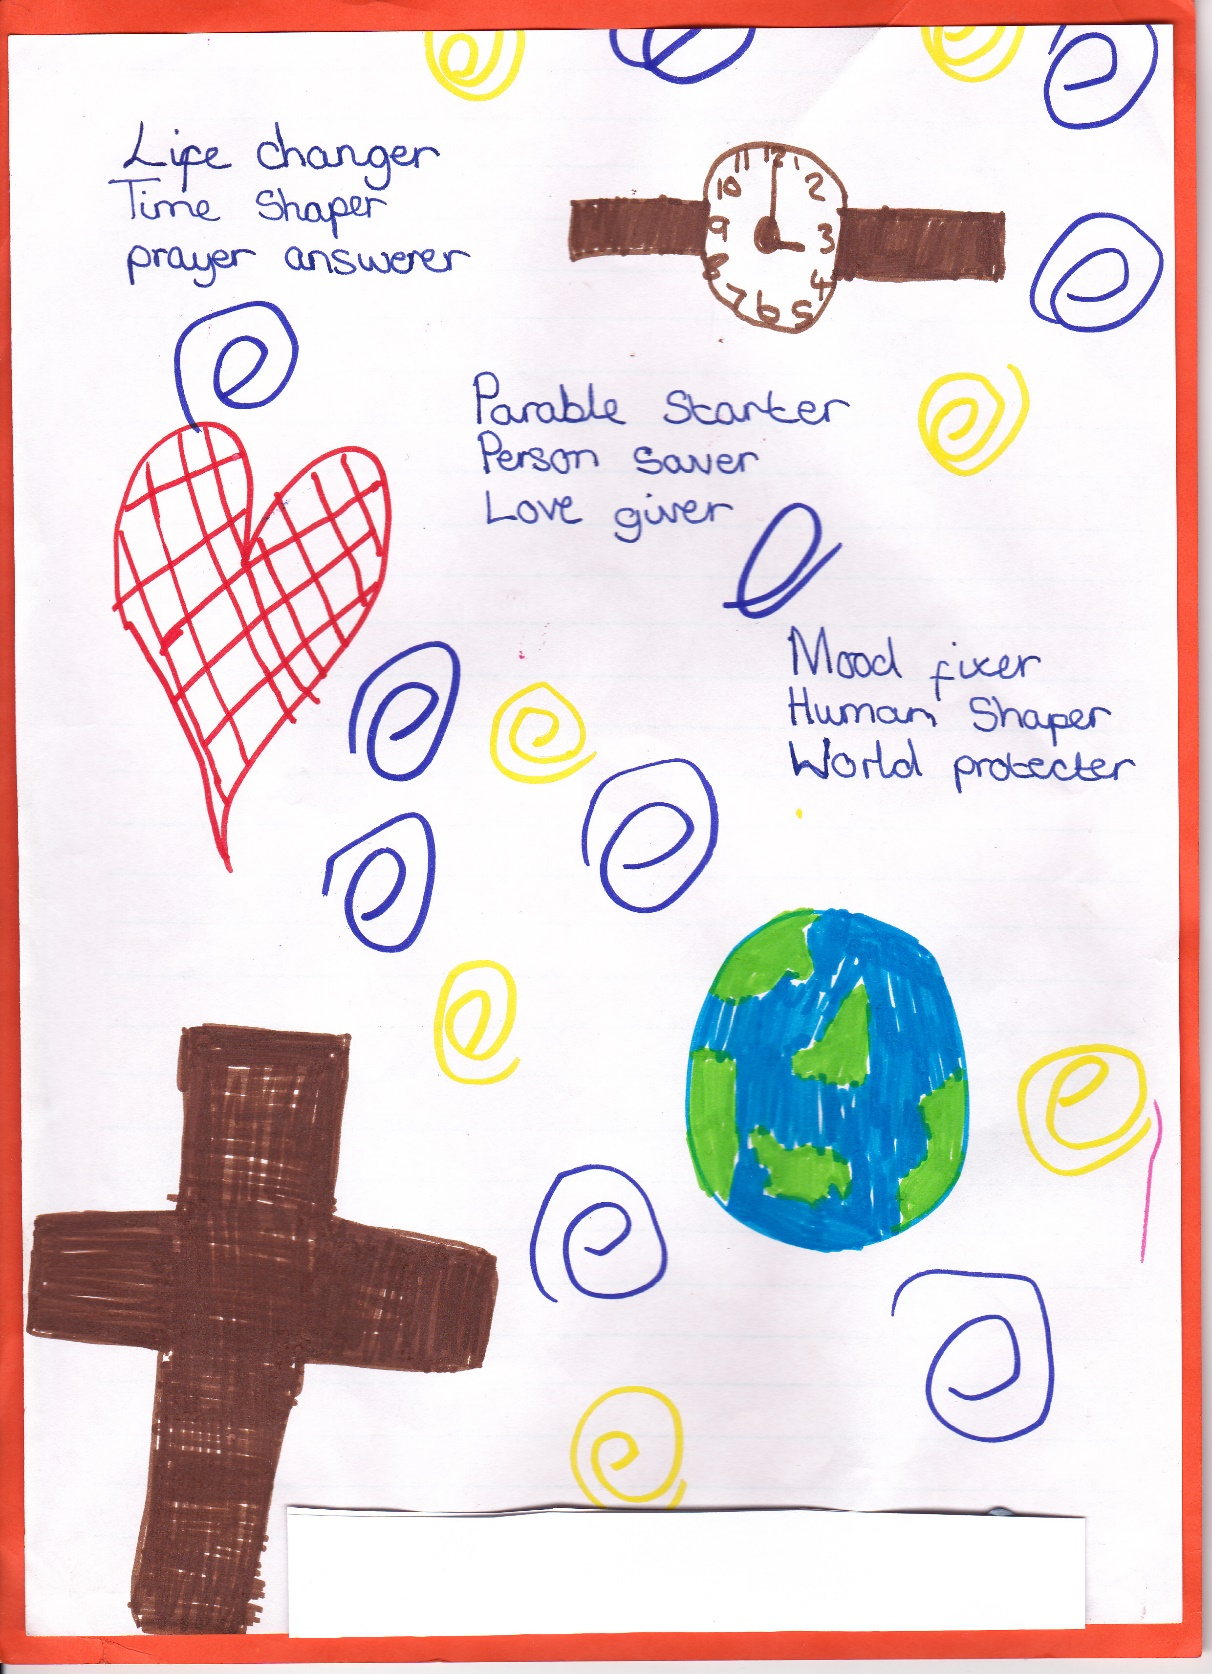 Life changer
Time Shaper
prayer answerer
11 12 1
10 2
9 3
8 4
7 6 5
Parable Starter
Person Saver
Love giver
Mood fixer
Human Shaper
World protecter